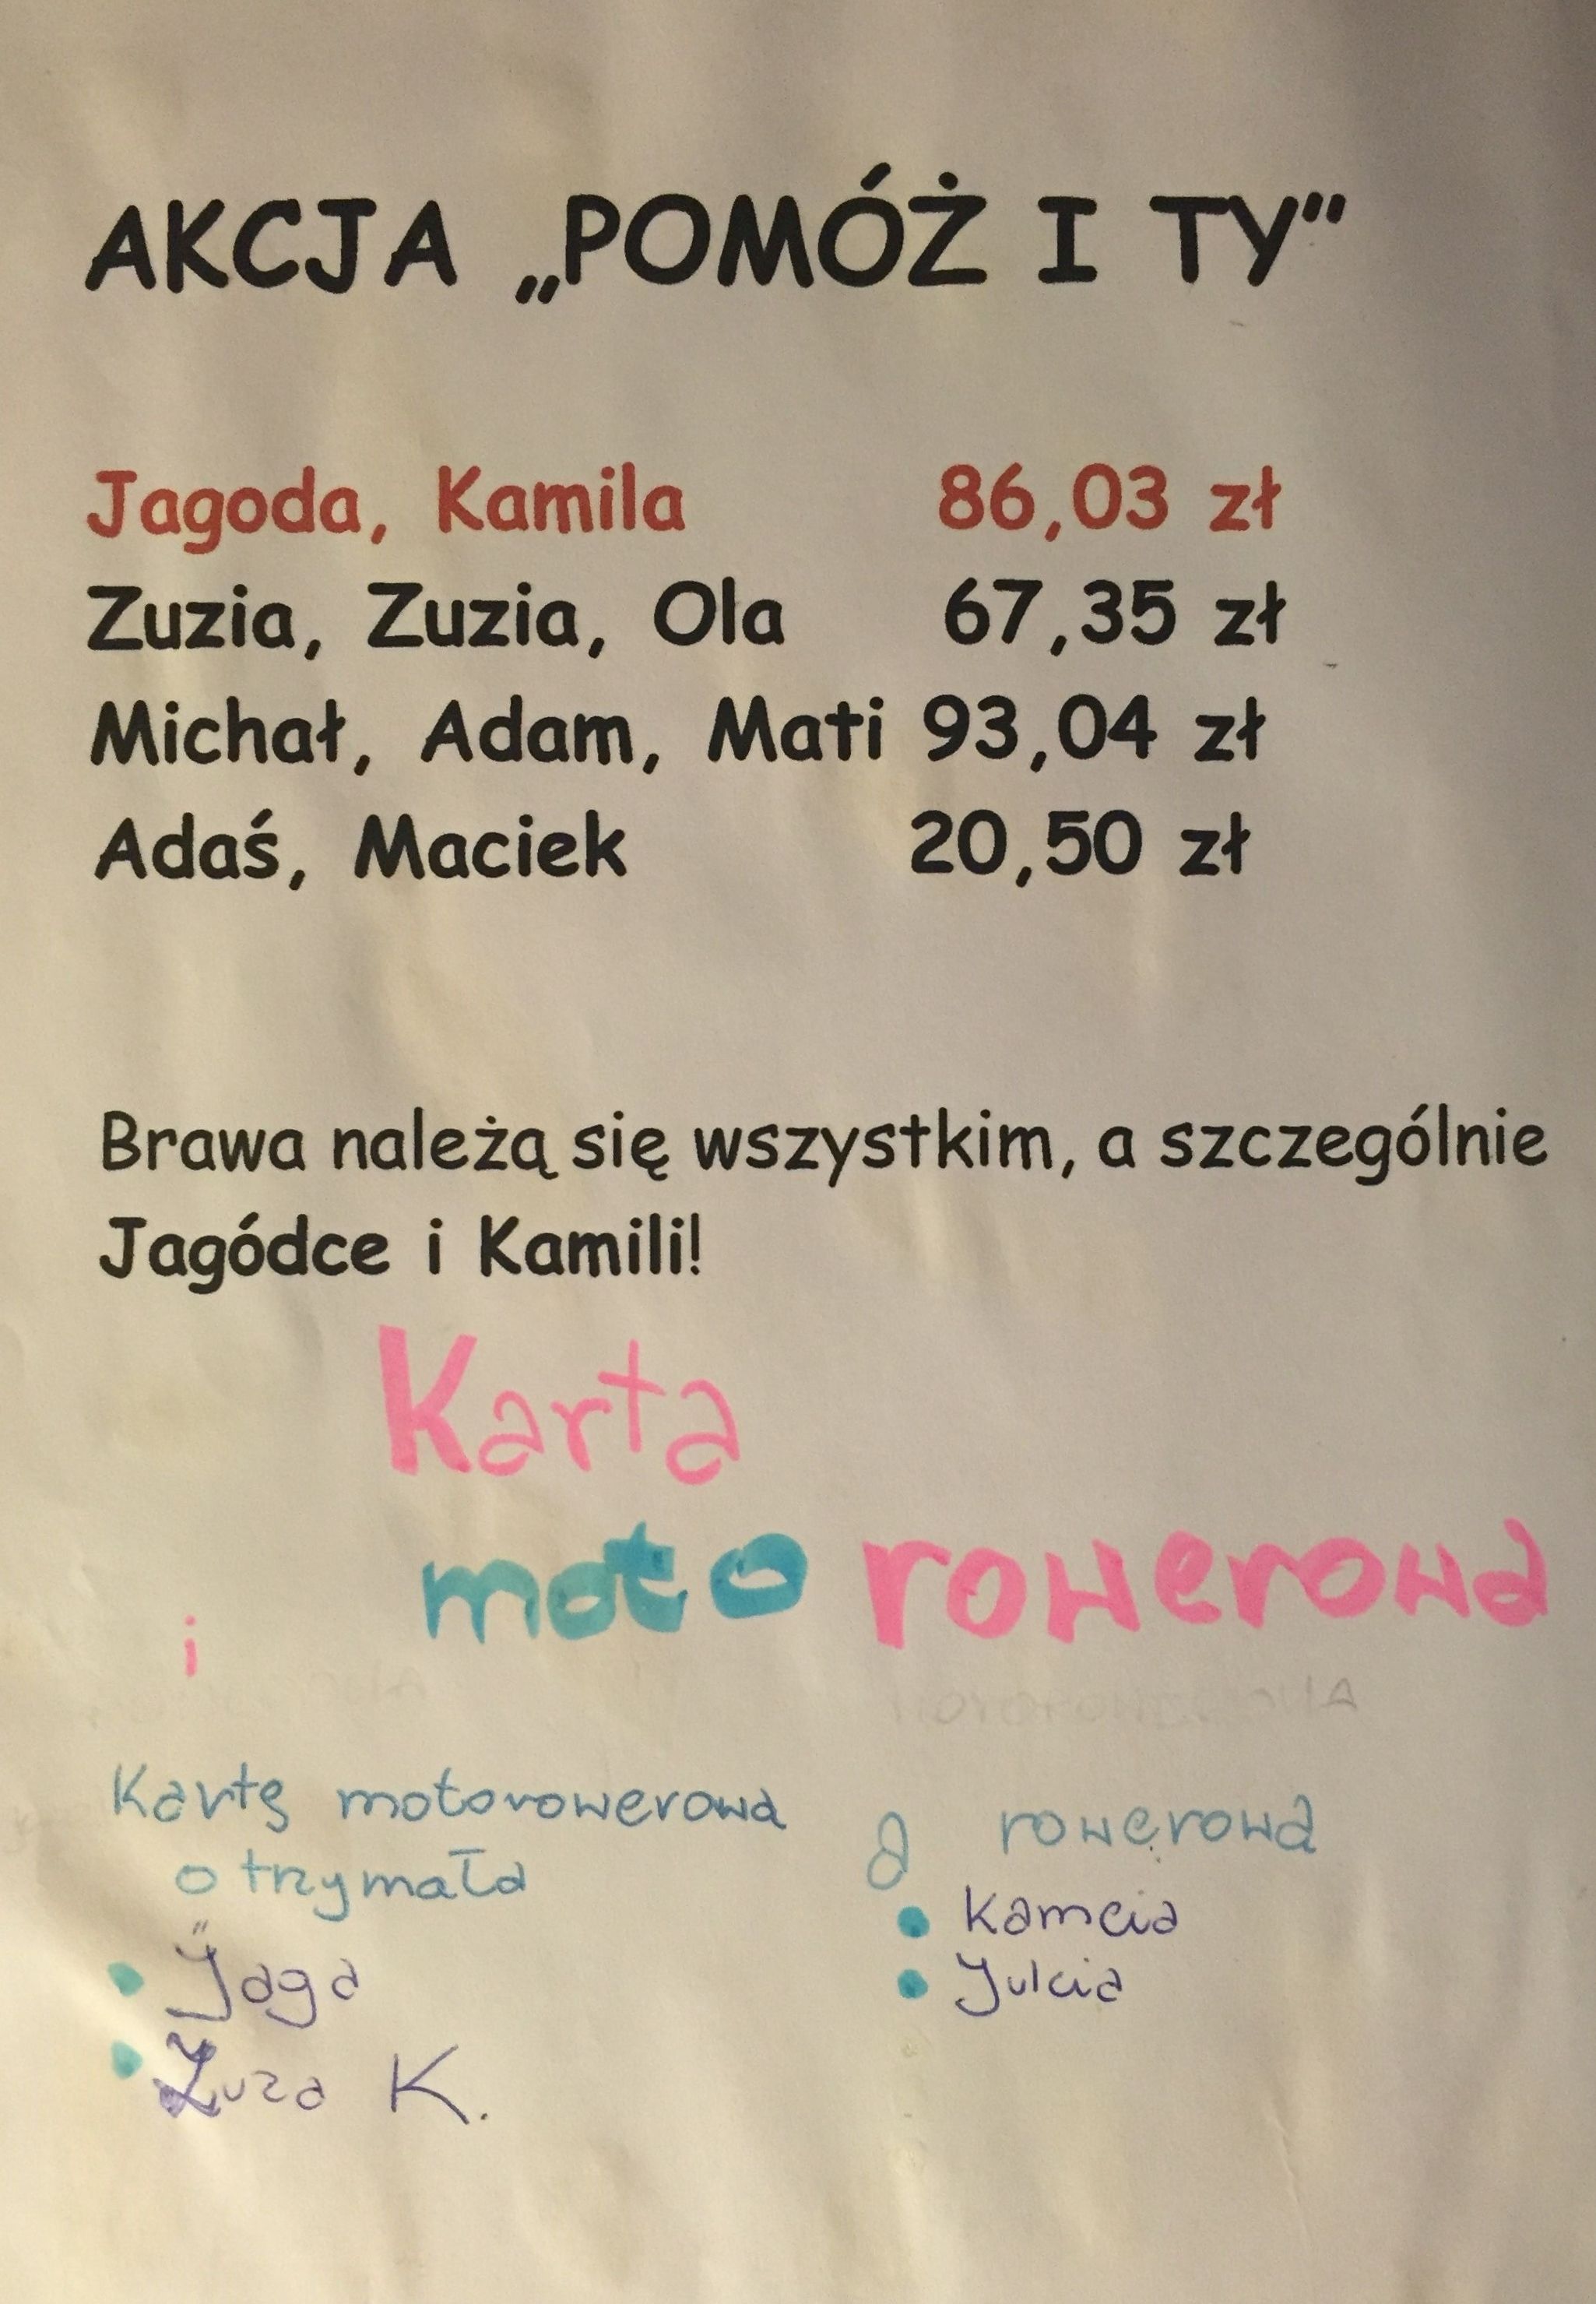 AKCJA „POMÓŻ I TY”
Jagoda, Kamila 86,03 zł
Zuzia, Zuzia, Ola 67,35 zł
Michał, Adam, Mati 93,04 zł
Adaś, Maciek 20,50 zł
Brawa należą się wszystkim, a szczególnie
Jagódce i Kamili!
Karta
i moto rowerowa
Kartę motorowerową
otrzymała
Jaga
Zuza K.
a rowerową
Kamcia
Julcia